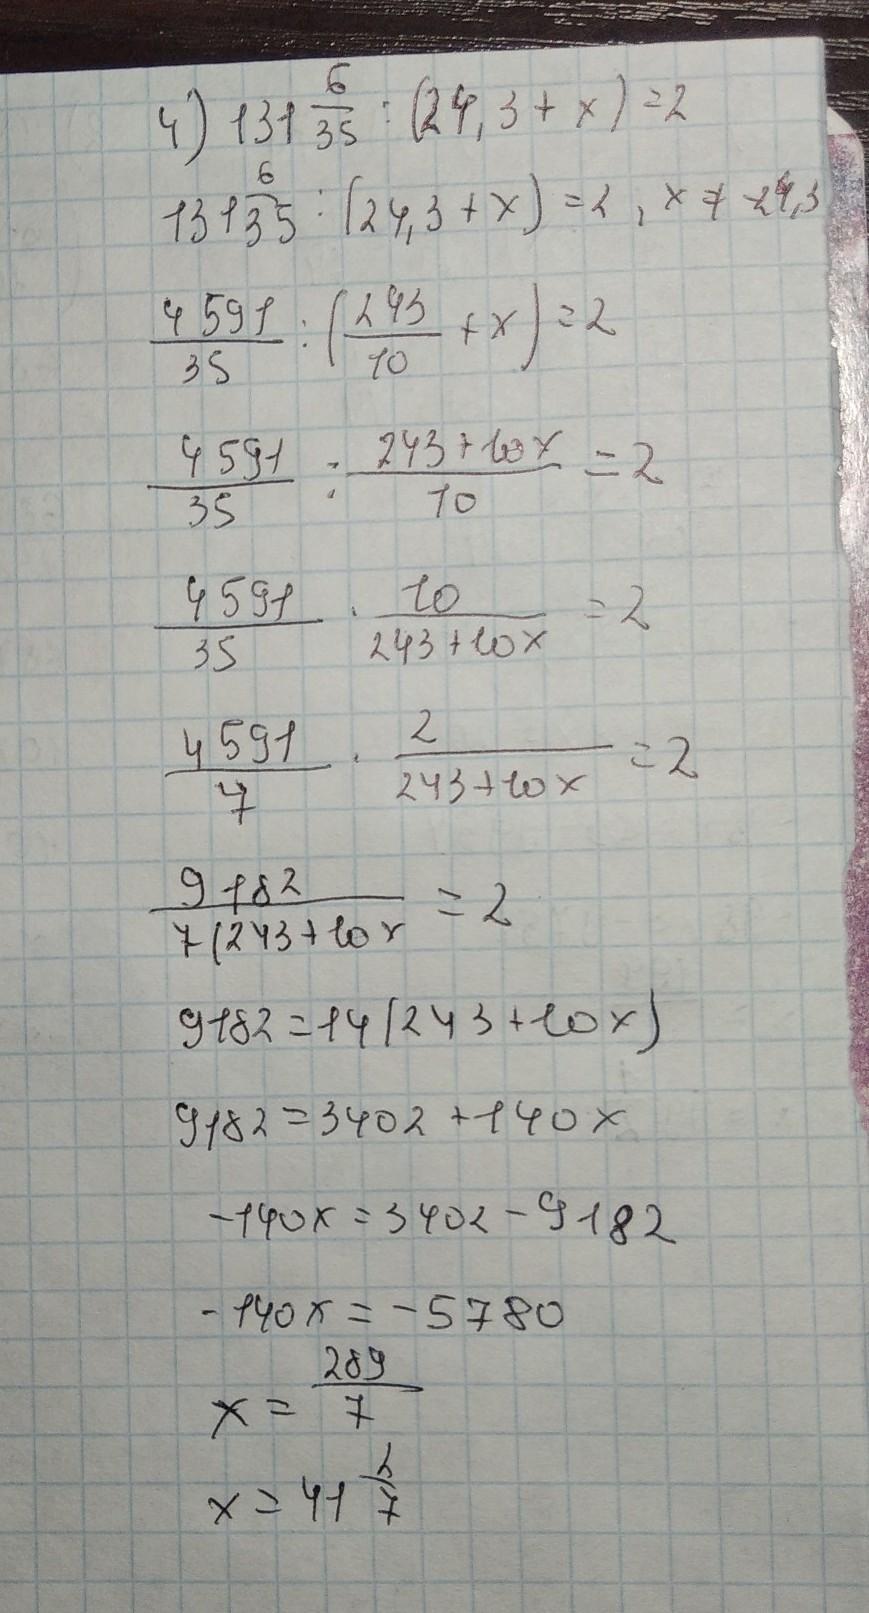 4) 131 6/35 : (24,3 + x) = 2
131 6/35 : (24,3 + x) = 2, x ≠ -24,3
4591/35 : (243/10 + x) = 2
4591/35 : (243+10x)/10 = 2
4591/35 · 10/(243+10x) = 2
4591/7 · 2/(243+10x) = 2
9182/7(243+10x = 2
9182=14(243+10x)
9182=3402+140x
-140x=3402-9182
-140x=-5780
x= 289/7
x=41 2/7